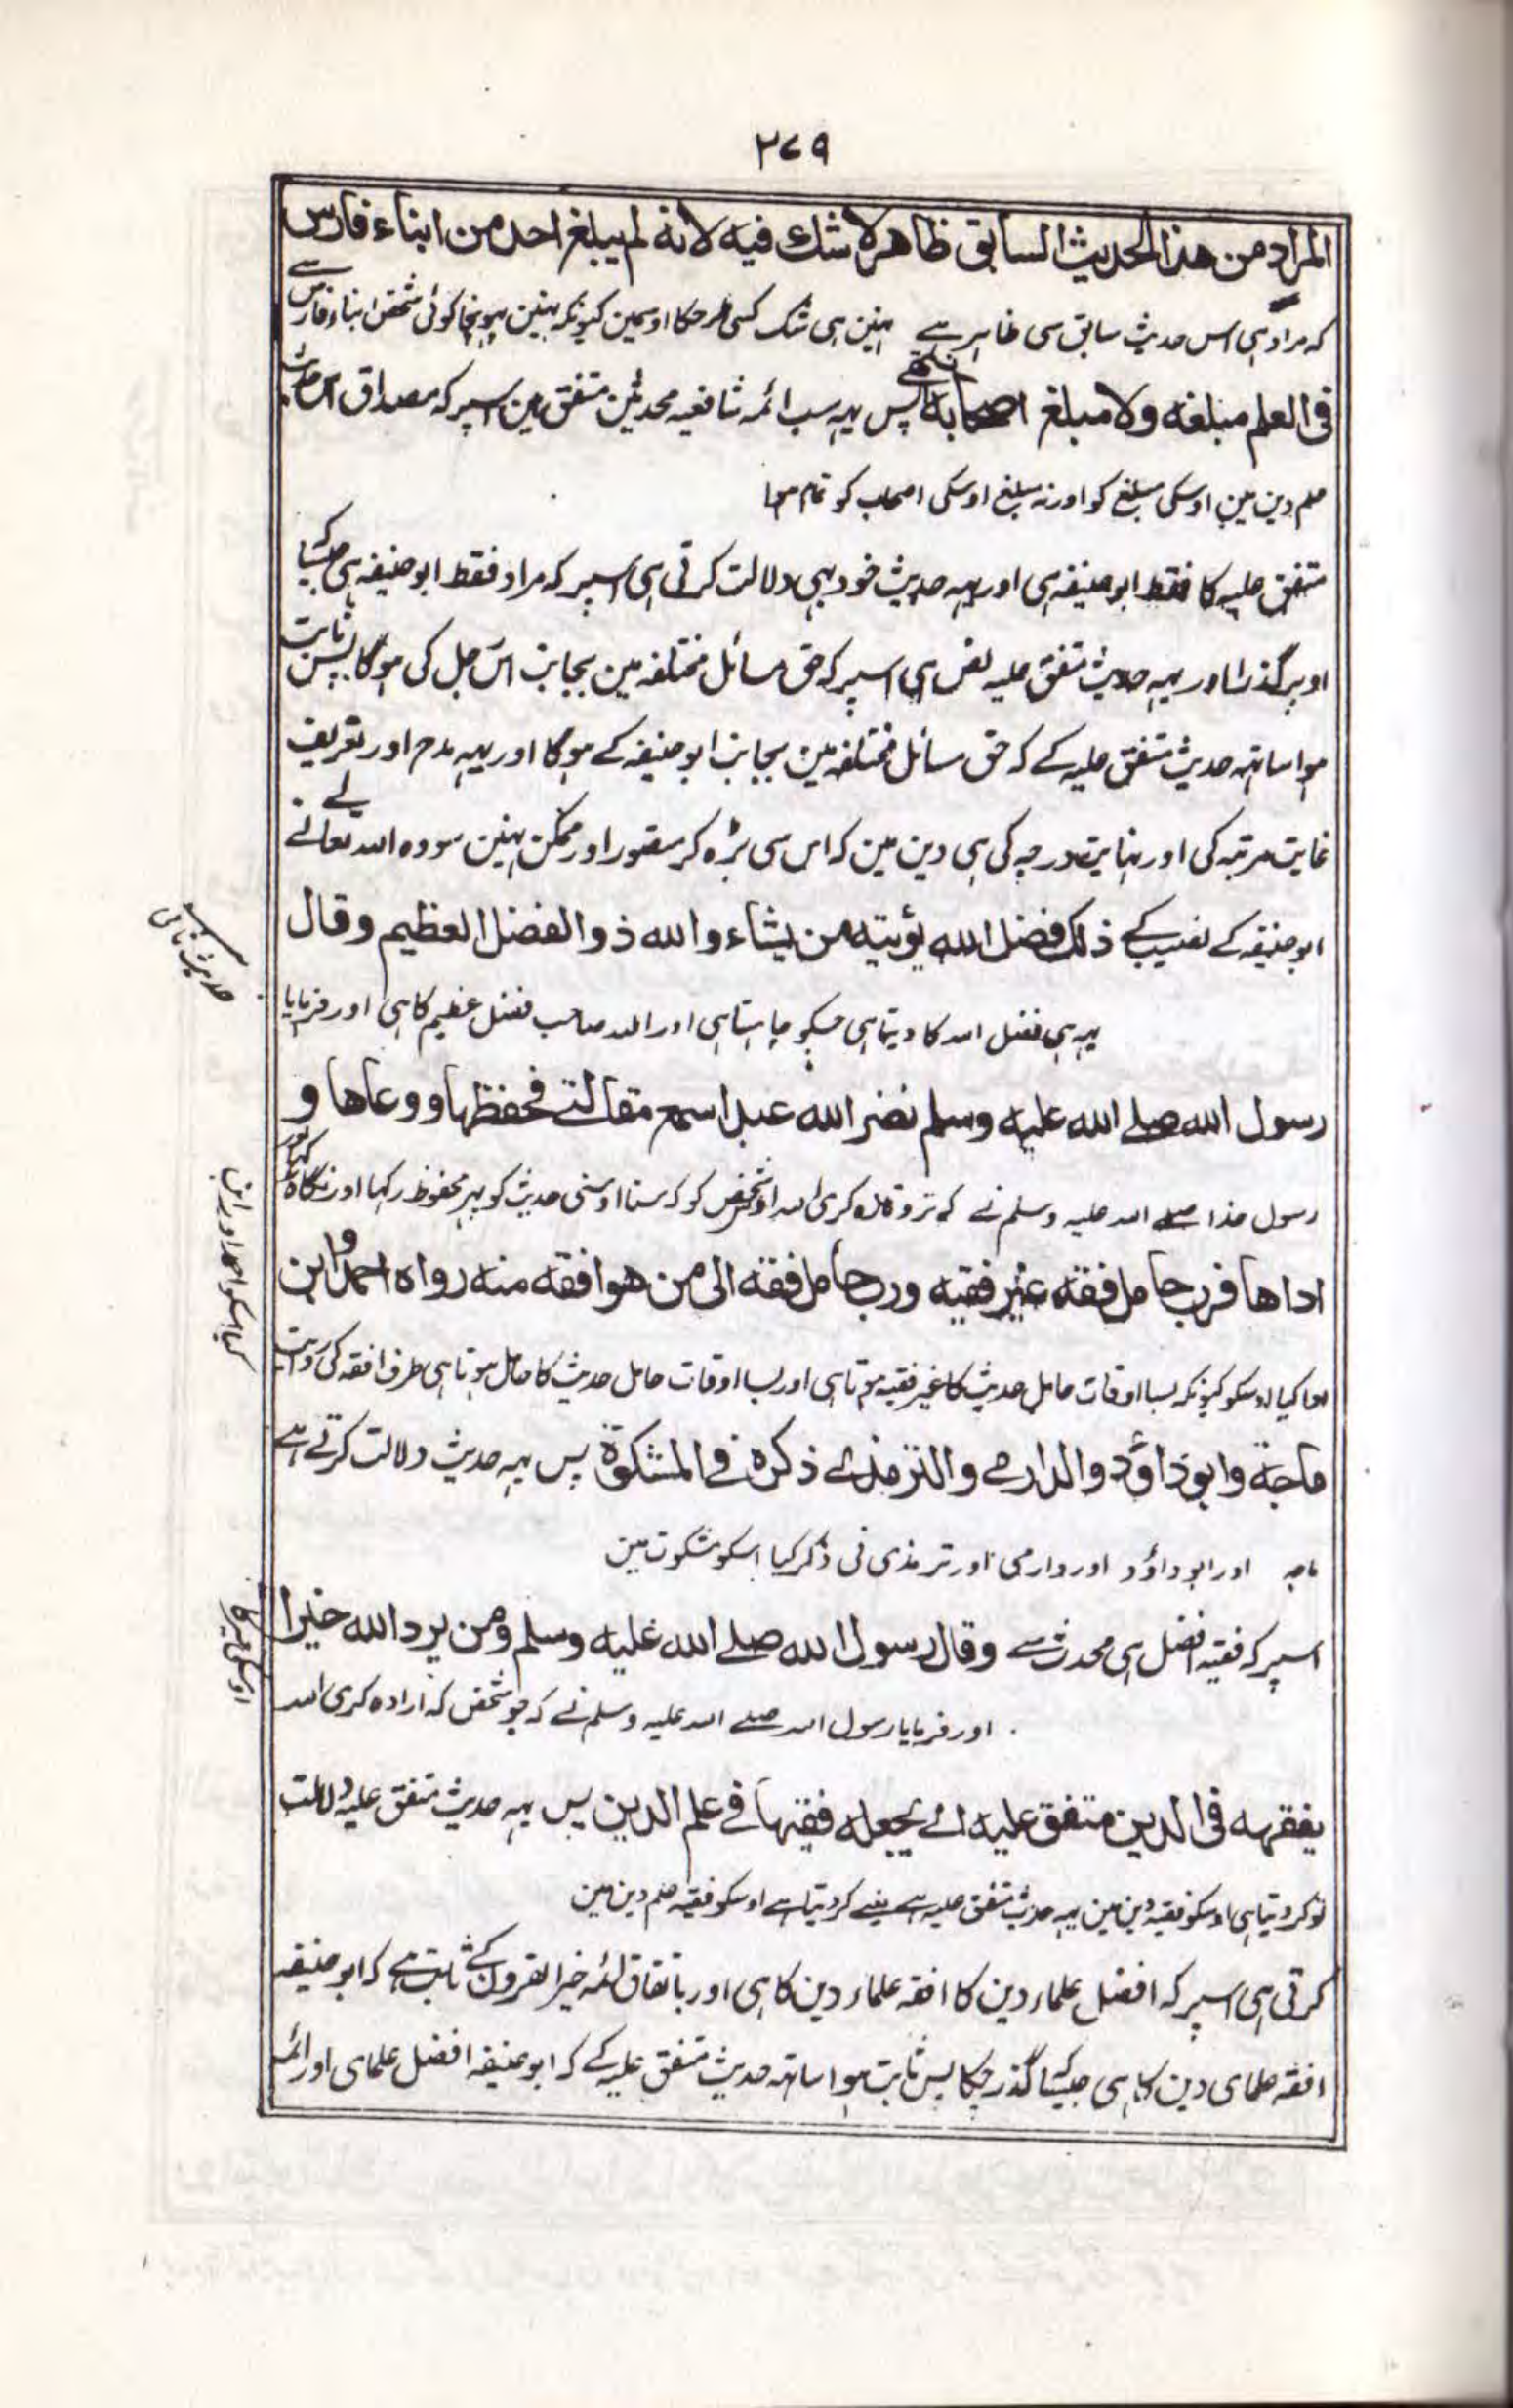 ۲۷۹
المراد من هذا الحديث السابق ظاهر لا شك فيه لانه لم يبلغ احد من ابناء فارس
که مراد ہی اس حدیث سابق سی ظاہر ہے نہین ہی شک کسی طرحکا اوسمین کیونکہ نہین پہونچا کوئی شخص ابناء فارس سے
فى العلم مبلغه ولا مبلغ اصحابه انتهى پس یہہ سب ائمہ شافعیہ محدثین متفق ہین اسپر کہ مصداق اس حدیث
علم دین مین اوسکی مبلغ کو اور نہ مبلغ اوسکی اصحاب کو تمام ہوا
متفق علیہ کا فقط ابو حنیفہ ہی اور یہہ حدیث خود بہی دلالت کرتی ہی اسپر کہ مراد فقط ابو حنیفہ ہی جیسا کہ
اوپر گذرا اور یہہ حدیث متفق علیہ نص ہی اسپر کہ حق مسائل مختلفہ مین بجانب اس رجل کی ہوگا پس ثابت
ہوا ساتہہ حدیث متفق علیہ کے کہ حق مسائل مختلفہ مین بجانب ابو حنیفہ کے ہوگا اور یہہ مدح اور تعریف
غایت مرتبہ کی اور نہایت درجہ کی ہی دین مین کہ اس سی بڑہ کر متصور اور ممکن نہین سو وہ اللہ تعالے نے
ابو حنیفہ کے نصیب کے ذلك فضل الله يؤتيه من يشاء والله ذو الفضل العظيم وقال
یہہ ہی فضل اللہ کا دیتا ہی جسکو چاہتا ہی اور اللہ صاحب فضل عظیم کا ہی اور فرمایا
حدیث ثانی
رسول الله صلے الله عليه وسلم نضر الله عبدا سمع مقالتے فحفظها ووعاها و
رسول خدا صلے اللہ علیہ وسلم نے کہ تر وتازہ کری اللہ اوس شخص کو کہ سنا اوسنی حدیث کو پہر محفوظ رکہا اور نگاہ رکہا اور
اداها فرب حامل فقه غير فقيه ورب حامل فقه الى من هو افقه منه رواه احمد وابن
ادا کیا اوسکو کیونکہ بسا اوقات حامل حدیث کا غیر فقیہ ہوتا ہی اور بسا اوقات حامل حدیث کا حامل ہوتا ہی طرف افقہ کی روایت
کیا اسکو احمد اور ابن
ماجة وابو داؤد والدارمے والترمذے ذكره فے المشكوة پس یہہ حدیث دلالت کرتے ہے
ماجہ اور ابو داؤد اور دارمی اور ترمذی نی ذکر کیا اسکو مشکوت مین
اسپر کہ فقیہ افضل ہی محدث سے وقال رسول الله صلے الله عليه وسلم ومن يرد الله خيرا
اور فرمایا رسول اللہ صلے اللہ علیہ وسلم نے کہ جو شخص کہ ارادہ کری اللہ
يفقهه فى الدين متفق عليه اے يجعله فقيها فے علم الدين پس یہہ حدیث متفق علیہ دلالت
تو کر دیتا ہی اوسکو فقیہ دین مین یہہ حدیث متفق علیہ ہے یعنے کر دیتا ہے اوسکو فقیہ علم دین مین
کرتی ہی اسپر کہ افضل علماء دین کا افقہ علماء دین کا ہی اور باتفاق ائمہ خیر القرون کے ثابت ہے کہ ابو حنیفہ
افقہ علمای دین کا ہی جیسا کہ گذر چکا پس ثابت ہوا ساتہہ حدیث متفق علیہ کے کہ ابو حنیفہ افضل علمای اور ائمہ